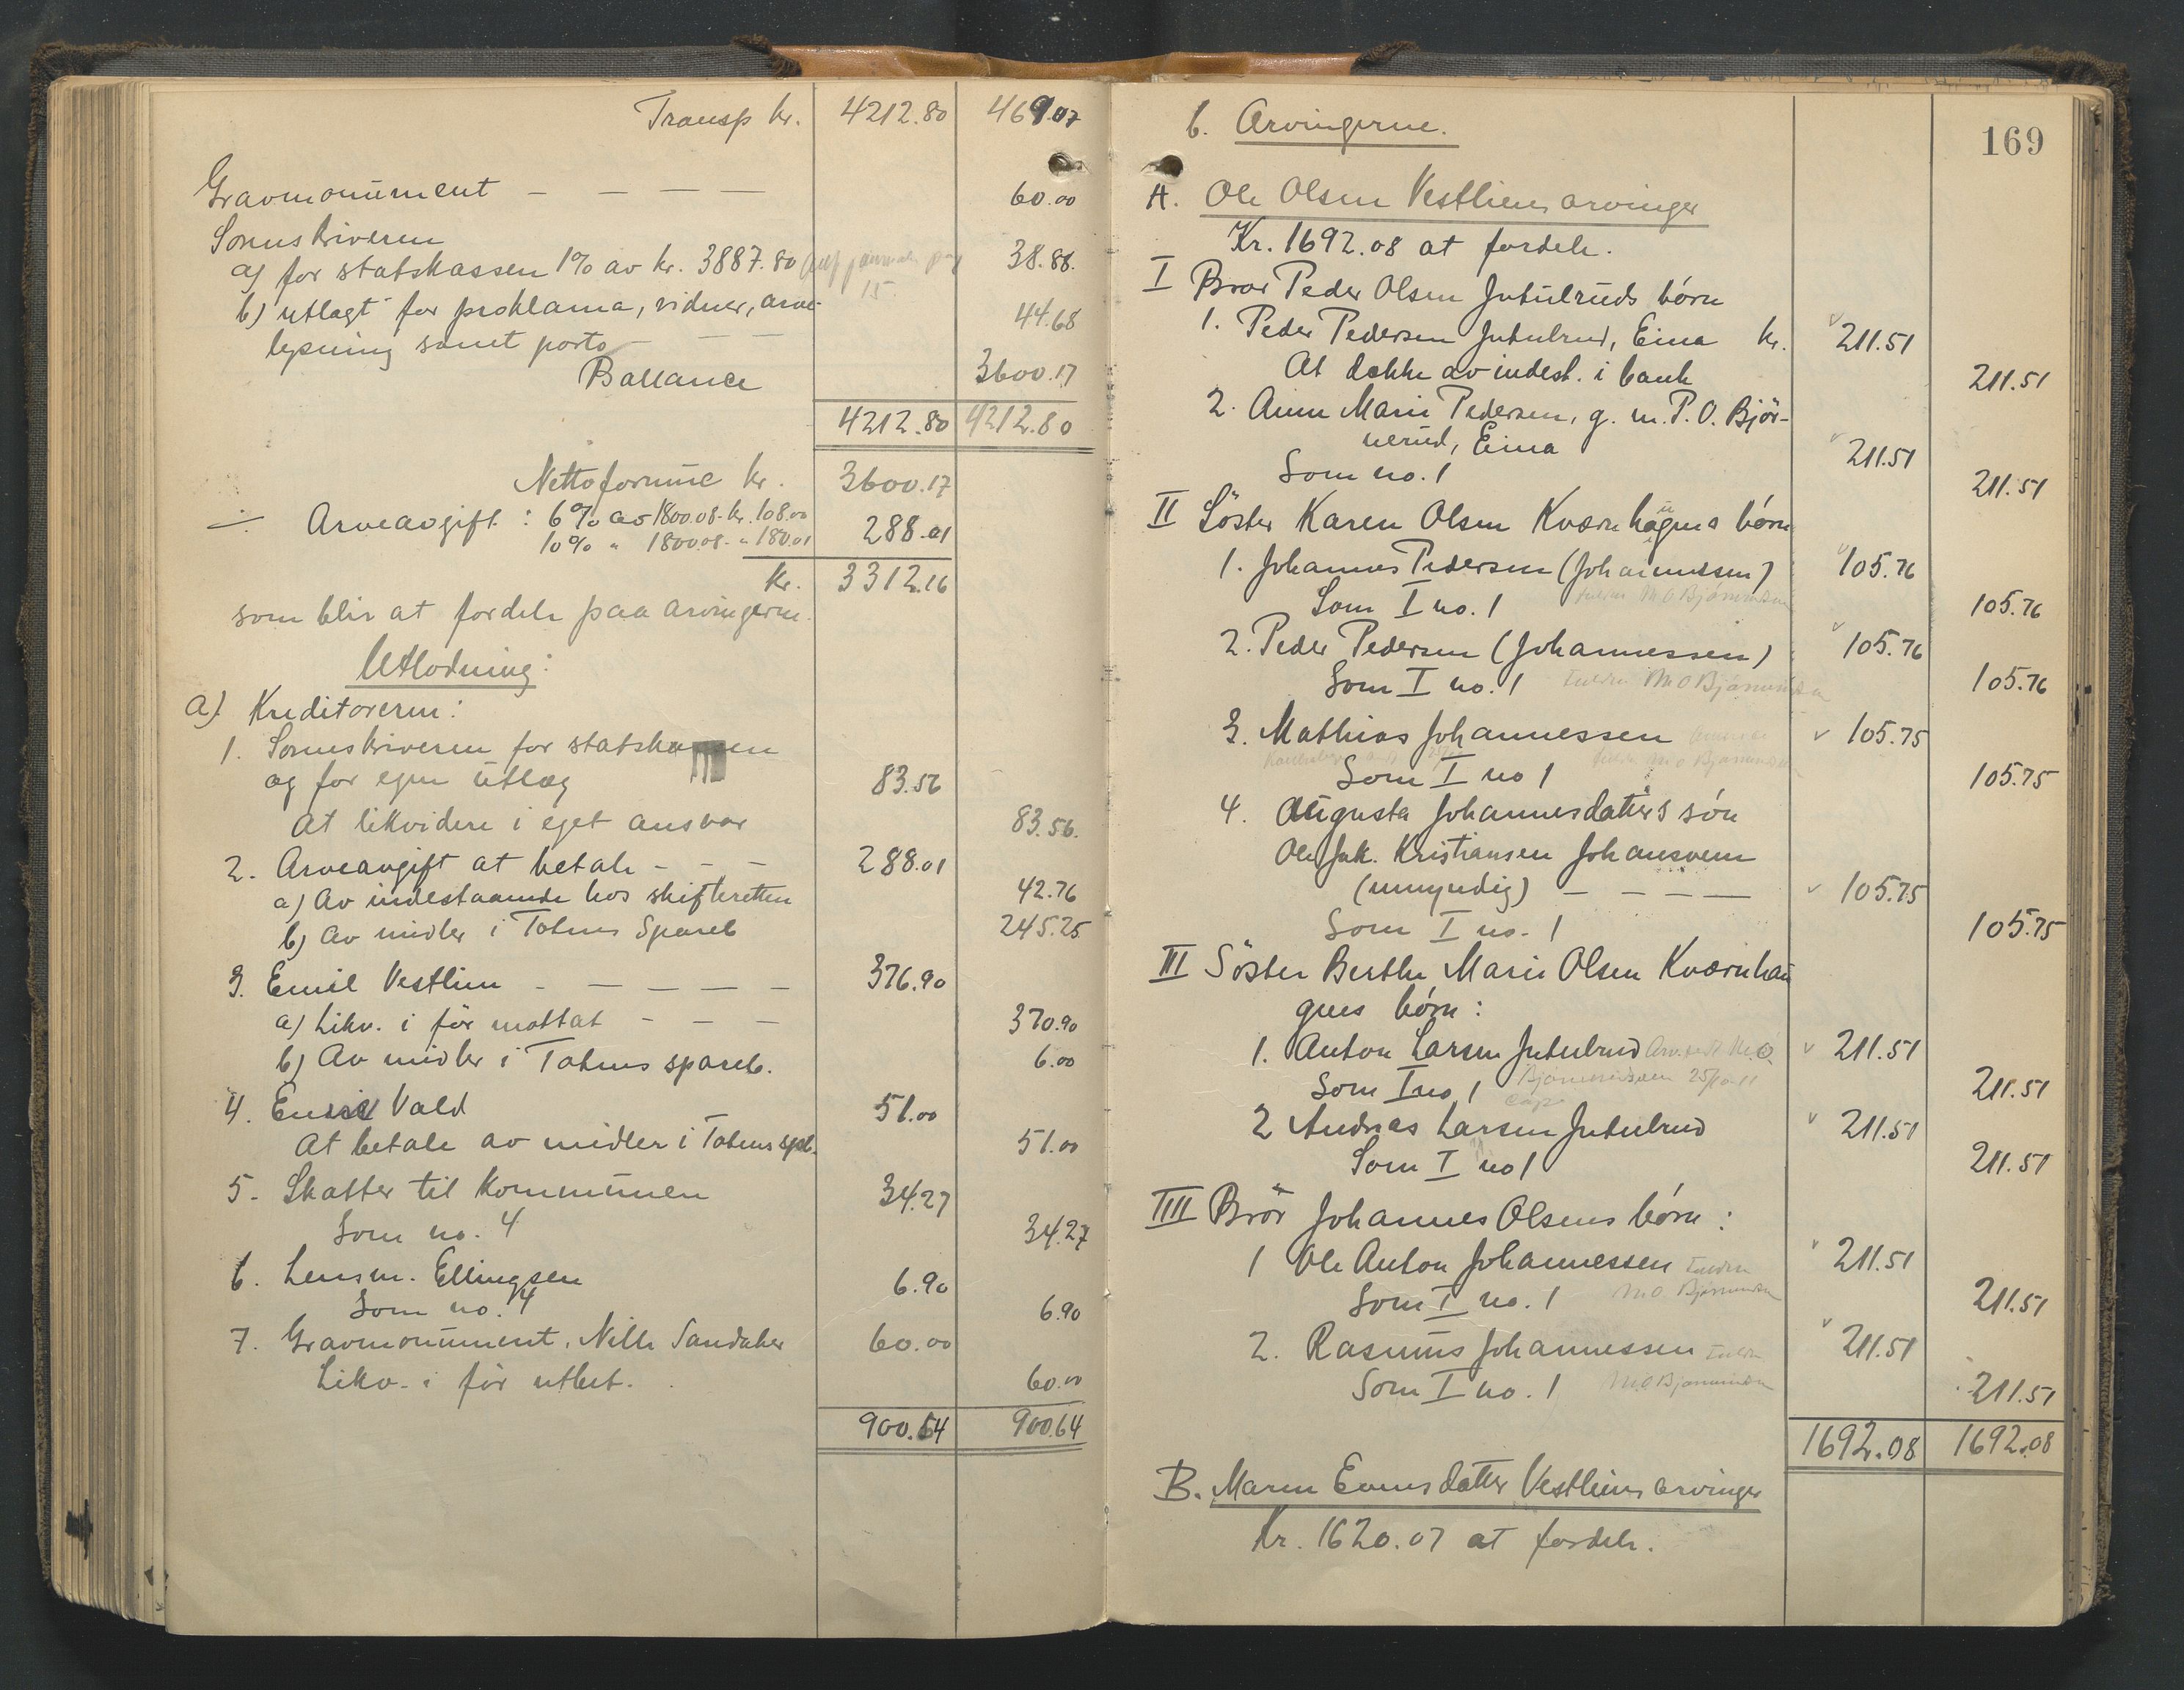 Transp kr. 4212.80 469.07
Gravmonument — — — — 60.00
Sorenskriveren
a) for statskassen 1% av kr. 3887.80 38.88.
15
b) utlagt for proklama, vidner, arve-
lysning samt porto — — 44.68
Ballance 3600.17
4212.80 4212.80
Nettoformue kr. 3600.17
÷ Arveavgift: 6% av 1800.08 - kr. 108.00
10% " 1800.08 - " 180.01 288.01
Kr. 3312.16
som blir at fordele paa arvingerne.
Utlodning:
a). Kreditorerne:
1. Sorenskriveren for statskassen
og for egne utlæg 83.56
At likvidere i eget ansvar 83.56.
2. Arveavgift at betale - - - 288.01
a) Av indestaaende hos skifteretten 42.76
b) Av midler i Totens Spareb 245.25
3. Emil Vestlien - — — — — 376.90
a) Likv. i før mottat - - — 370.90
b) Av midler i Totens spareb. 6.00
4. Emil Vold 51.00
At betale av midler i Totens spb. 51.00
5. Skatter til kommunen 34.27
Som no. 4 34.27
6. Lensm. Ellingsen 6.90
Som no. 4 6.90
7. Gravmonument, Nils Sandaker 60.00
Likv. i før utbet. 60.00
900.64 900.64
169
b. Arvingerne.
A. Ole Olsen Vestliens arvinger
Kr. 1692.08 at fordele.
I Bror Peder Olsen Jutulruds børn
1. Peder Pedersen Jutulrud, Eina kr. 211.51
At dekke av indest. i bank 211.51
2. Anne Marie Pedersen, g. m. P. O. Bjør-
nerud, Eina 211.51
Som no. 1 211.51
II Søster Karen Olsen Kværnhaugens børn
1. Johannes Pedersen (Johannessen) 105.76
Som I no. 1 M O Bjørnerudsen 105.76
2. Peder Pedersen (Johannessen) 105.76
Som I no. 1 M O Bjørnerudsen 105.76
3. Mathias Johannessen 105.75
Som I no 1 105.75
4. Augusta Johannesdatters søn
Ole Jak. Kristiansen Johansveen
(umyndig) — — — — 105.75
Som I no. 1 105.75
III Søster Berthe Marie Olsen Kværnhau
gens børn:
1. Anton Larsen Jutulrud 211.51
Som I no 1 211.51
2 Andreas Larsen Jutulrud 211.51
Som I no 1 211.51
IIII Bror Johannes Olsens børn:
1 Ole Anton Johannessen 211.51
Som I no. 1 M O 211.51
2. Rasmus Johannessen 211.51
Som I no. 1 M O 211.51
1692.08 1692.08
B. Maren Evensdatter Vestliens arvinger
Kr. 1620.07 at fordele.